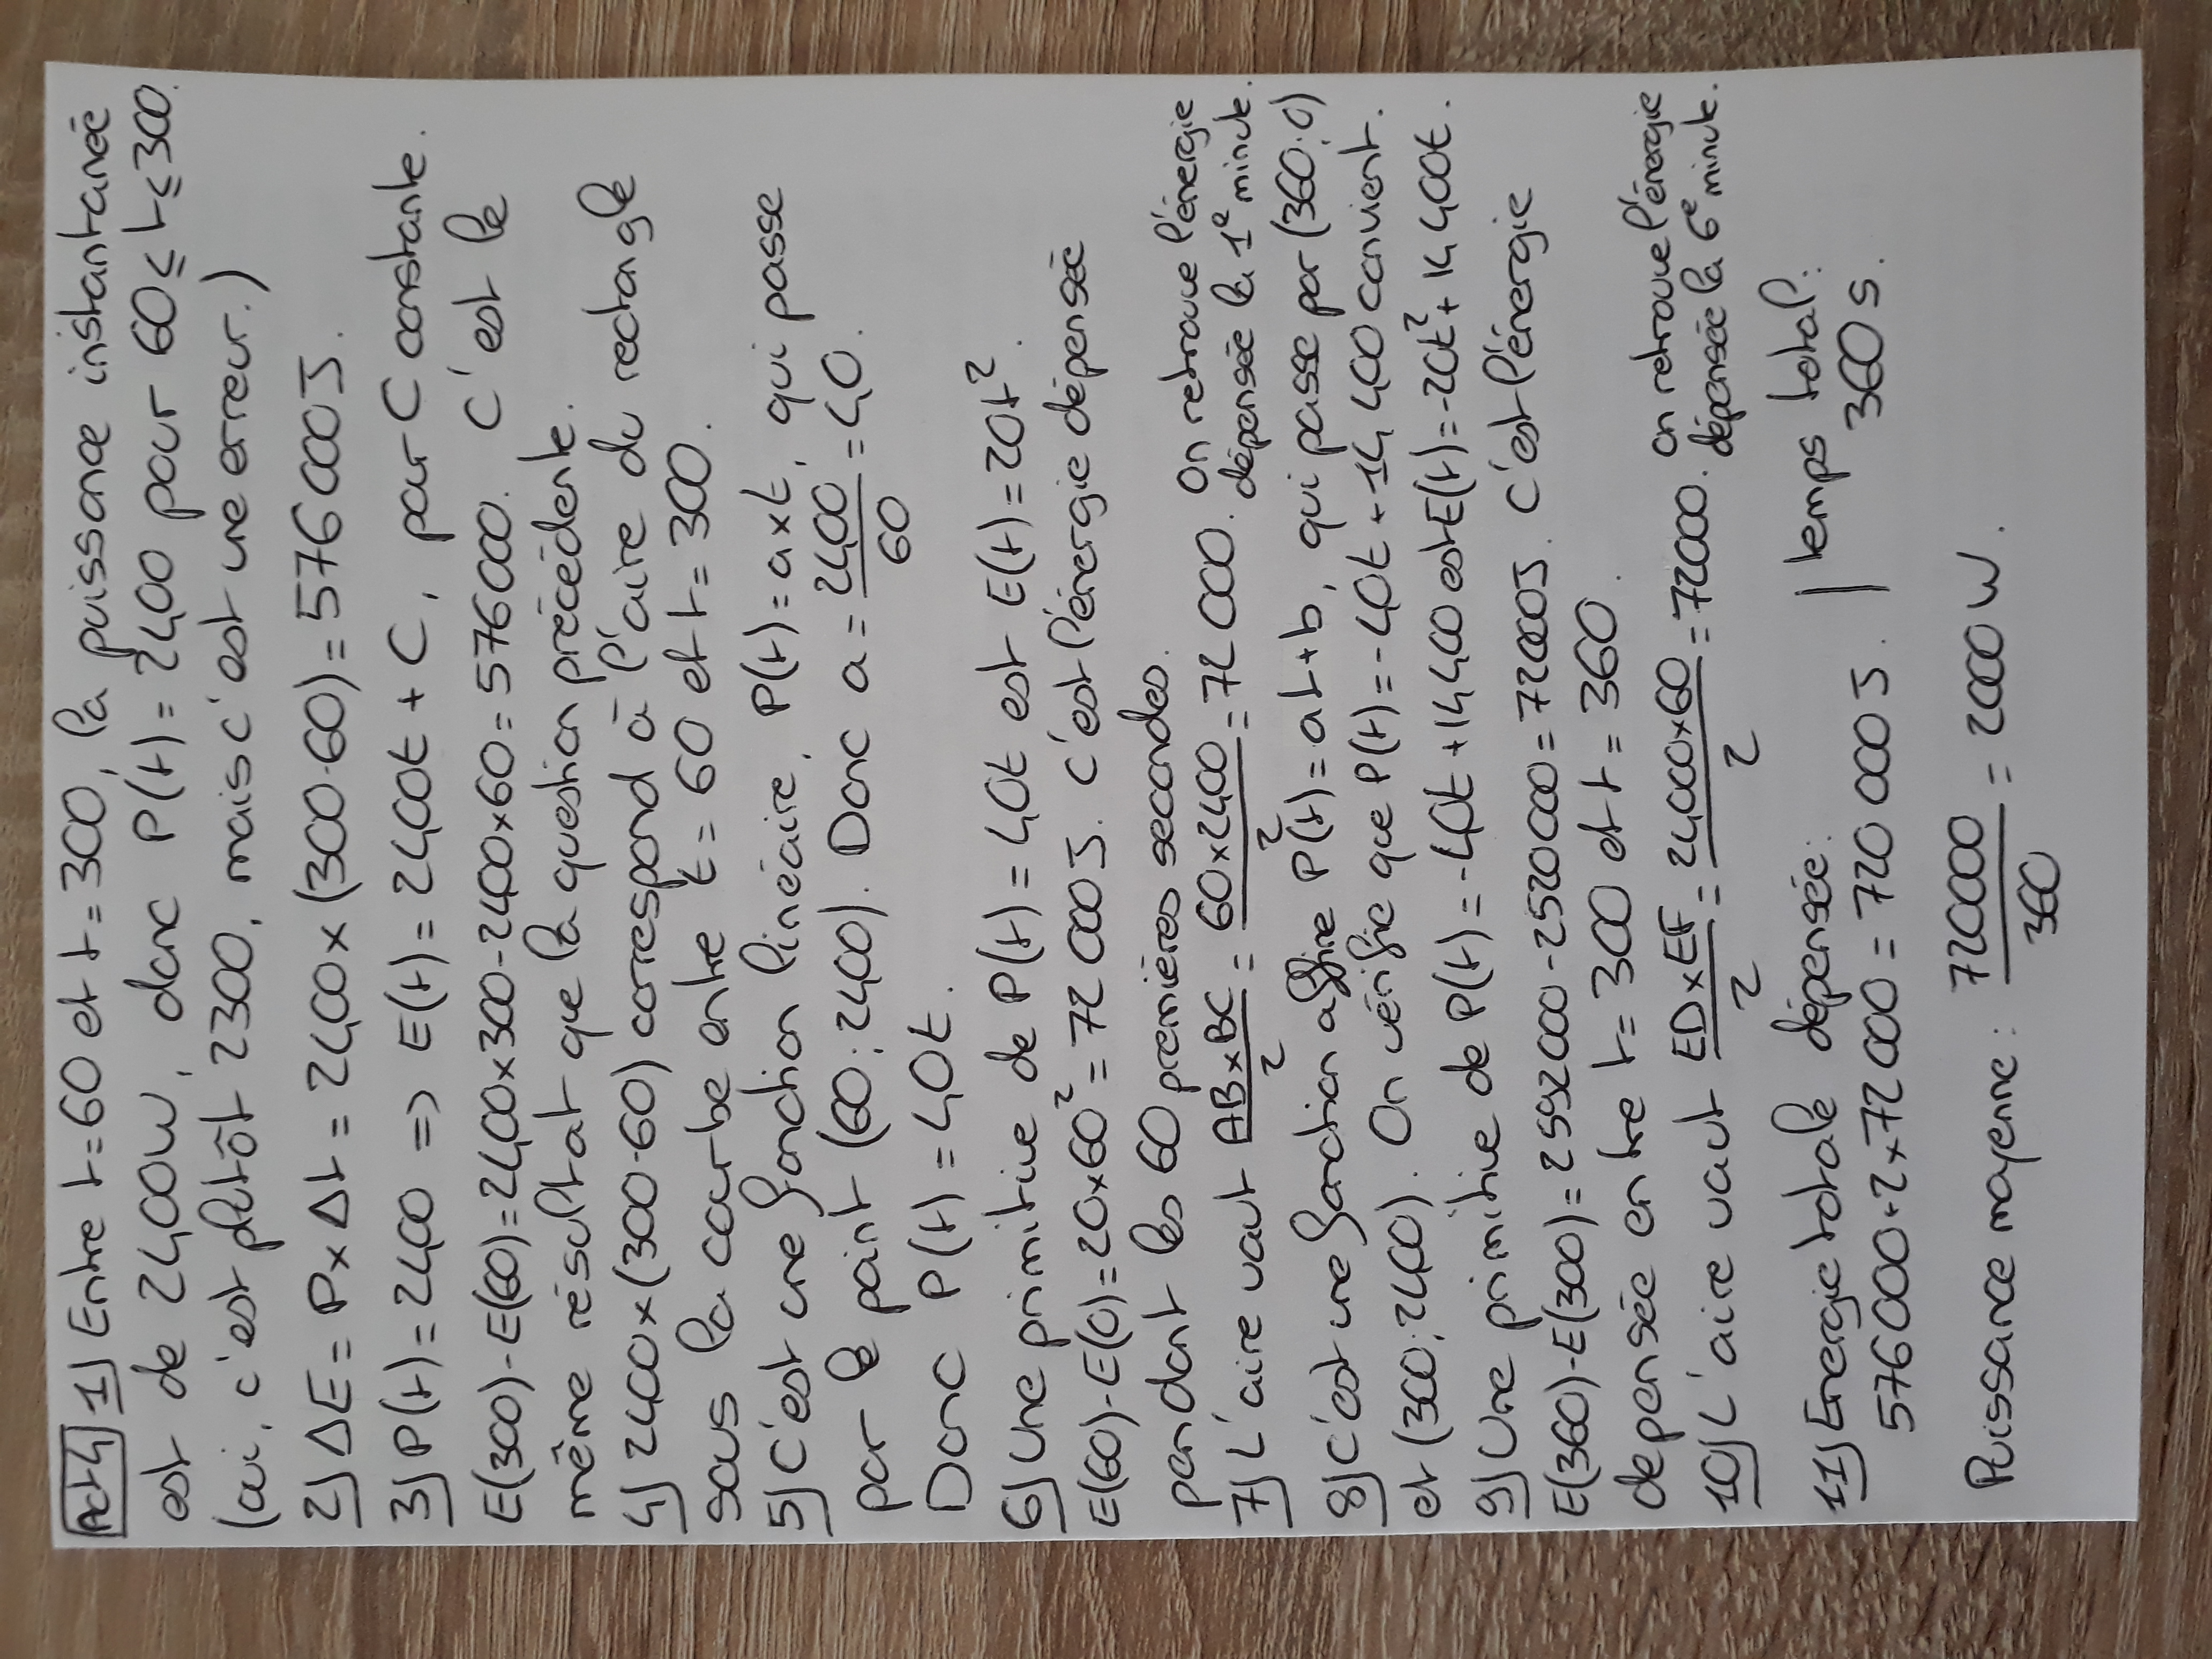 Act 4 1) Entre t=60 et t=300, la puissance instantanée
est de 2400W, donc P(t)=2400 pour 60≤t≤300.
(oui, c'est plutôt 2300, mais c'est une erreur.)
2) ΔE = P×Δt = 2400×(300-60)=576000J.
3) P(t)=2400 => E(t)=2400t + C, pour C constante.
E(300)-E(60)=2400×300-2400×60=576000. C'est le
même résultat que la question précédente.
4) 2400×(300-60) correspond à l'aire du rectangle
sous la courbe entre t=60 et t=300.
5) C'est une fonction linéaire, P(t)=a×t, qui passe
par le point (60;2400). Donc a = 2400/60 = 40.
Donc P(t)=40t.
6) Une primitive de P(t)=40t est E(t)=20t².
E(60)-E(0)=20×60²=72 000J. C'est l'énergie dépensée
pendant les 60 premières secondes.
7) L'aire vaut AB×BC/2 = 60×2400/2 = 72 000. On retrouve l'énergie
dépensée la 1e minute.
8) C'est une fonction affine P(t)=at+b, qui passe par (360;0)
et (300;2400). On vérifie que P(t)=-40t+14 400 convient.
9) Une primitive de P(t)=-40t+14 400 est E(t)=-20t²+14 400t.
E(360)-E(300)=2592000-2520000=72000J. C'est l'énergie
depensée entre t=300 et t=360.
10) L'aire vaut ED×EF/2 = 24000×60/2 = 72000. on retrouve l'énergie
dépensée la 6e minute.
11) Energie totale dépensée: | temps total:
576000+2×72000 = 720 000J. | 360s.
Puissance moyenne: 720000/360 = 2000W.